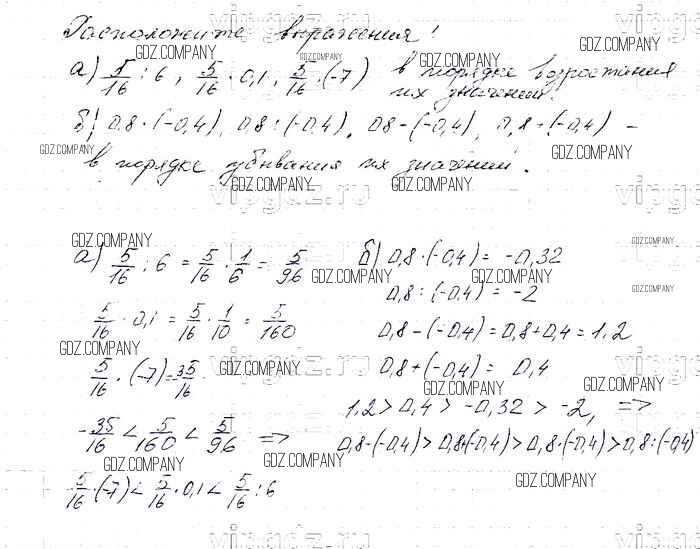 Расположите выражения!
а) 5/16 : 6, 5/16 · 0,1, 5/16 · (-7) в порядке возростания
их значений.
б) 0,8 · (-0,4), 0,8 : (-0,4), 0,8 - (-0,4), 0,8 + (-0,4) -
в порядке убывания их значений.
а) 5/16 : 6 = 5/16 · 1/6 = 5/96
5/16 · 0,1 = 5/16 · 1/10 = 5/160
5/16 · (-7) = -35/16
-35/16 < 5/160 < 5/96 =>
5/16 · (-7) < 5/16 · 0,1 < 5/16 : 6
б) 0,8 · (-0,4) = -0,32
0,8 : (-0,4) = -2
0,8 - (-0,4) = 0,8 + 0,4 = 1,2
0,8 + (-0,4) = 0,4
1,2 > 0,4 > -0,32 > -2, =>
0,8 - (-0,4) > 0,8 + (-0,4) > 0,8 · (-0,4) > 0,8 : (-0,4)
GDZ.COMPANY
vipgdz.ru